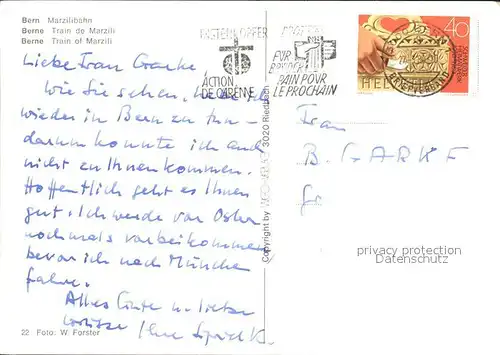 Bern Marzilibahn
Berne Train de Marzili
Berne Train of Marzili
FASTENOPFER
ACTION
DE CARÊME
BROT
FÜR
BRÜDER
PAIN POUR
LE PROCHAIN
40
HELVETIA
BRIEFVERSAND
Liebe Frau Gareke
Wie Sie sehen, habe ich
wieder in Bern zu tun –
darum konnte ich auch
nicht zu Ihnen kommen.
Hoffentlich geht es Ihnen
gut. Ich werde vor Ostern
nochmals vorbeikommen
bevor ich nach München
fahre.
Alles Gute u. liebe
Grüsse Ihre
22 Foto: W. Forster
Copyright by 3020 Riedbach
Frau
B. GARKE
privacy protection
Datenschutz